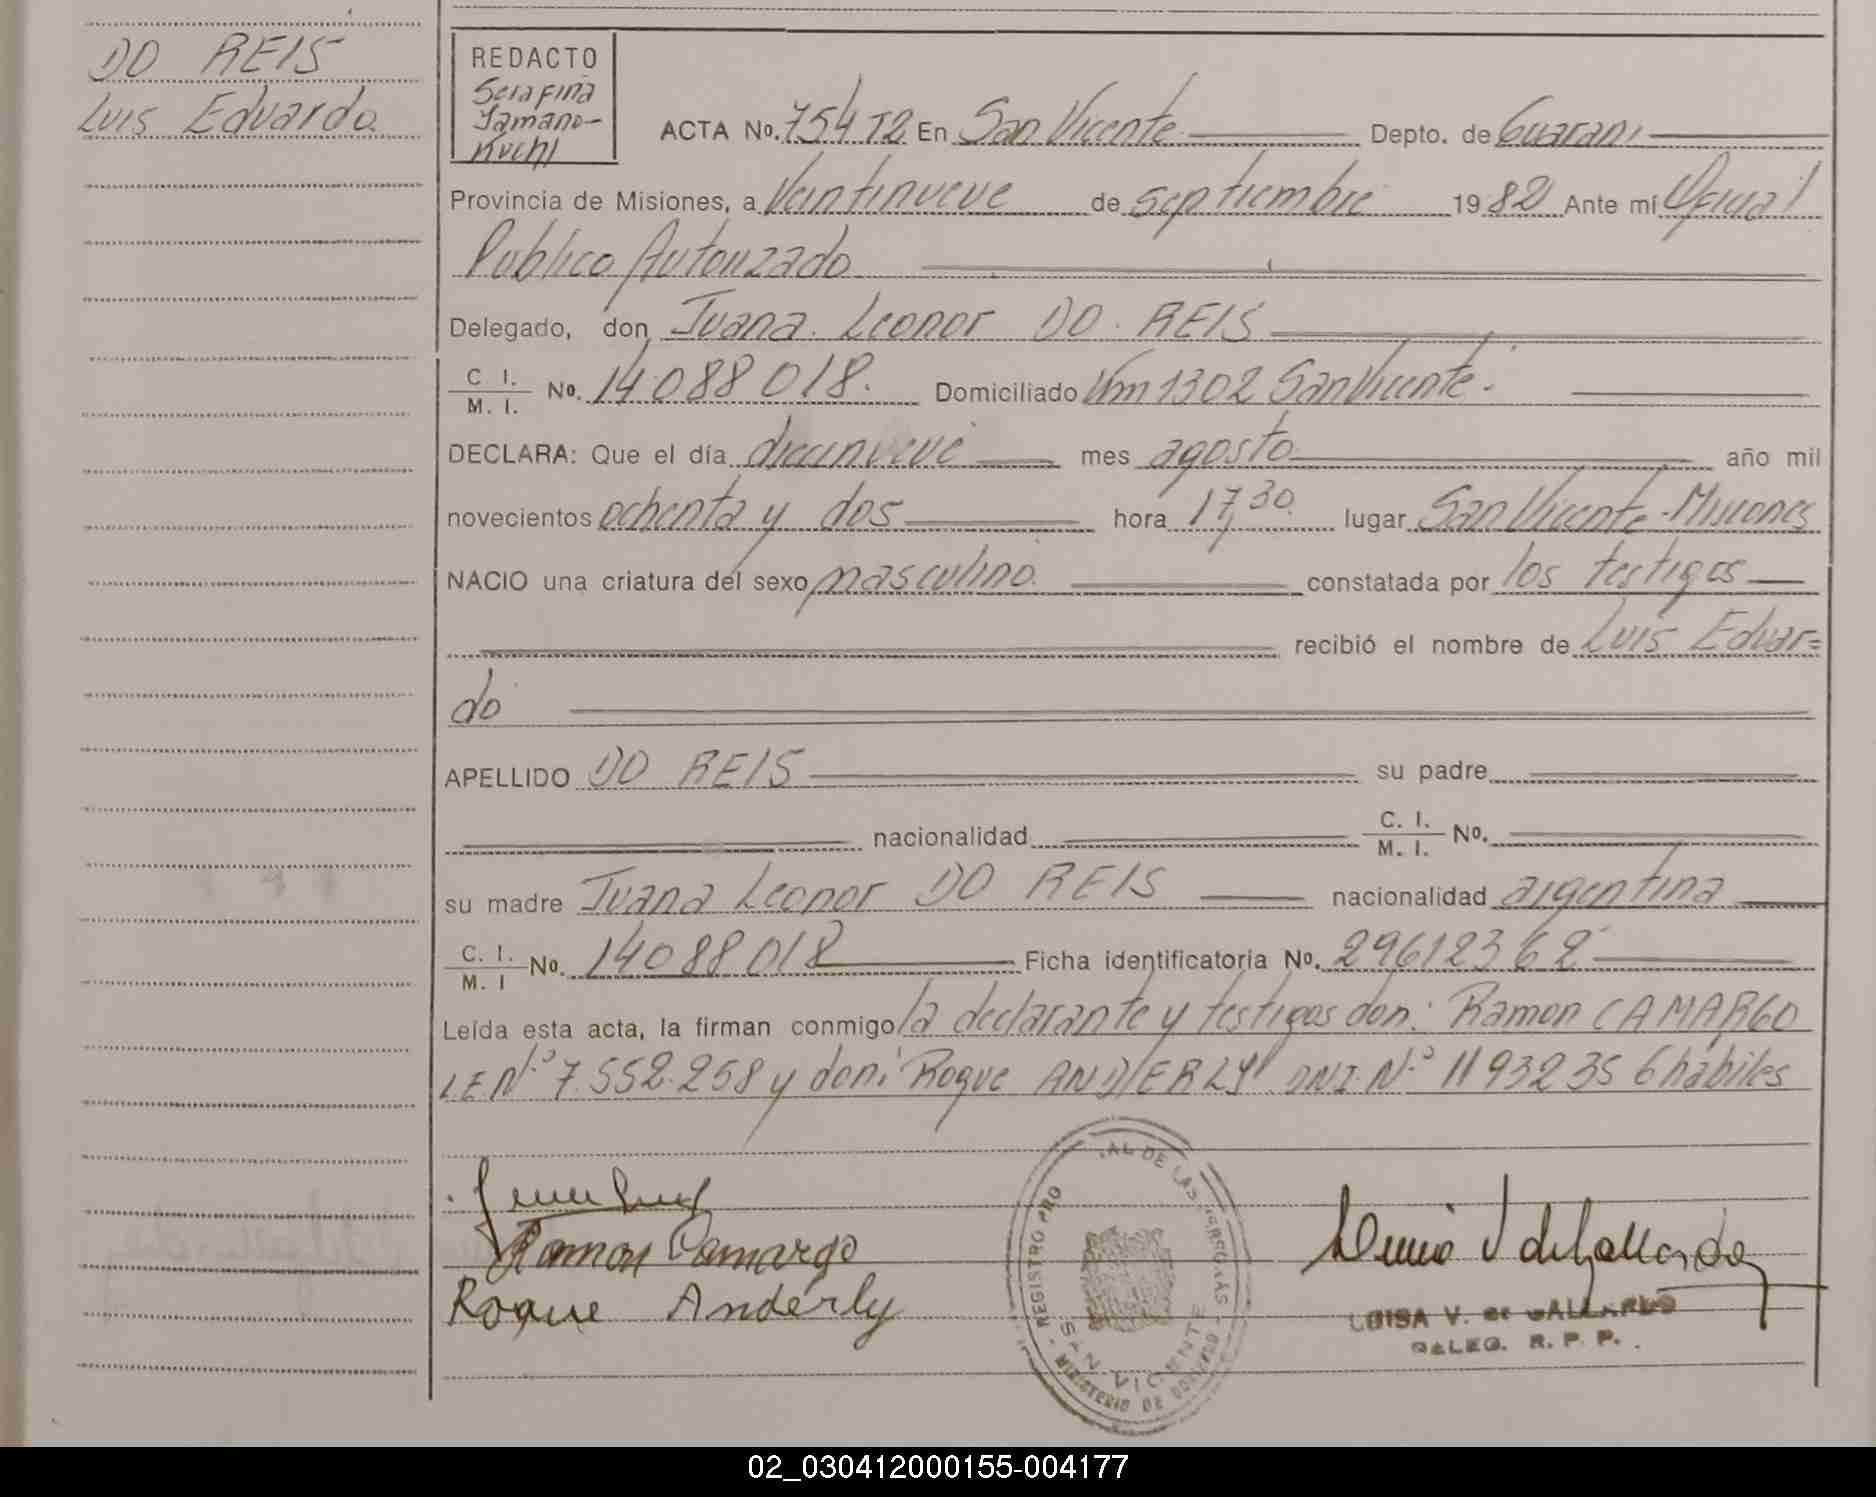 DO REIS
Luis Eduardo
REDACTO
Serafina
Yamano-
kuchi
ACTA No. 754 T2 En San Vicente Depto. de Guarani
Provincia de Misiones, a Veintinueve de septiembre 1982 Ante mí Oficial
Publico Autorizado
Delegado, don Juana Leonor DO REIS
C I. M. I. No. 14.088 018. Domiciliado Km 1302 San Vicente.
DECLARA: Que el día diecinueve mes agosto año mil
novecientos ochenta y dos hora 17,30 lugar San Vicente-Misiones
NACIO una criatura del sexo masculino constatada por los testigos
recibió el nombre de Luis Eduar=
do
APELLIDO DO REIS su padre
nacionalidad C. I. M. I. No.
su madre Juana Leonor DO REIS nacionalidad argentina
C. I. M. I No. 14088018 Ficha identificatoria No. 29612362
Leída esta acta, la firman conmigo la declarante y testigos don: Ramon CAMARGO
LE Nº 7.552.258 y don: Roque ANDERLY DNI. Nº 11932356 hábiles
Ramon Camargo
Roque Anderly
REGISTRO PRO AL DE LAS PERSONAS
SAN VICENTE
MINISTERIO DE GOBIERNO
LUISA V. de GALLARDO
DELEG. R. P. P.
02_030412000155-004177